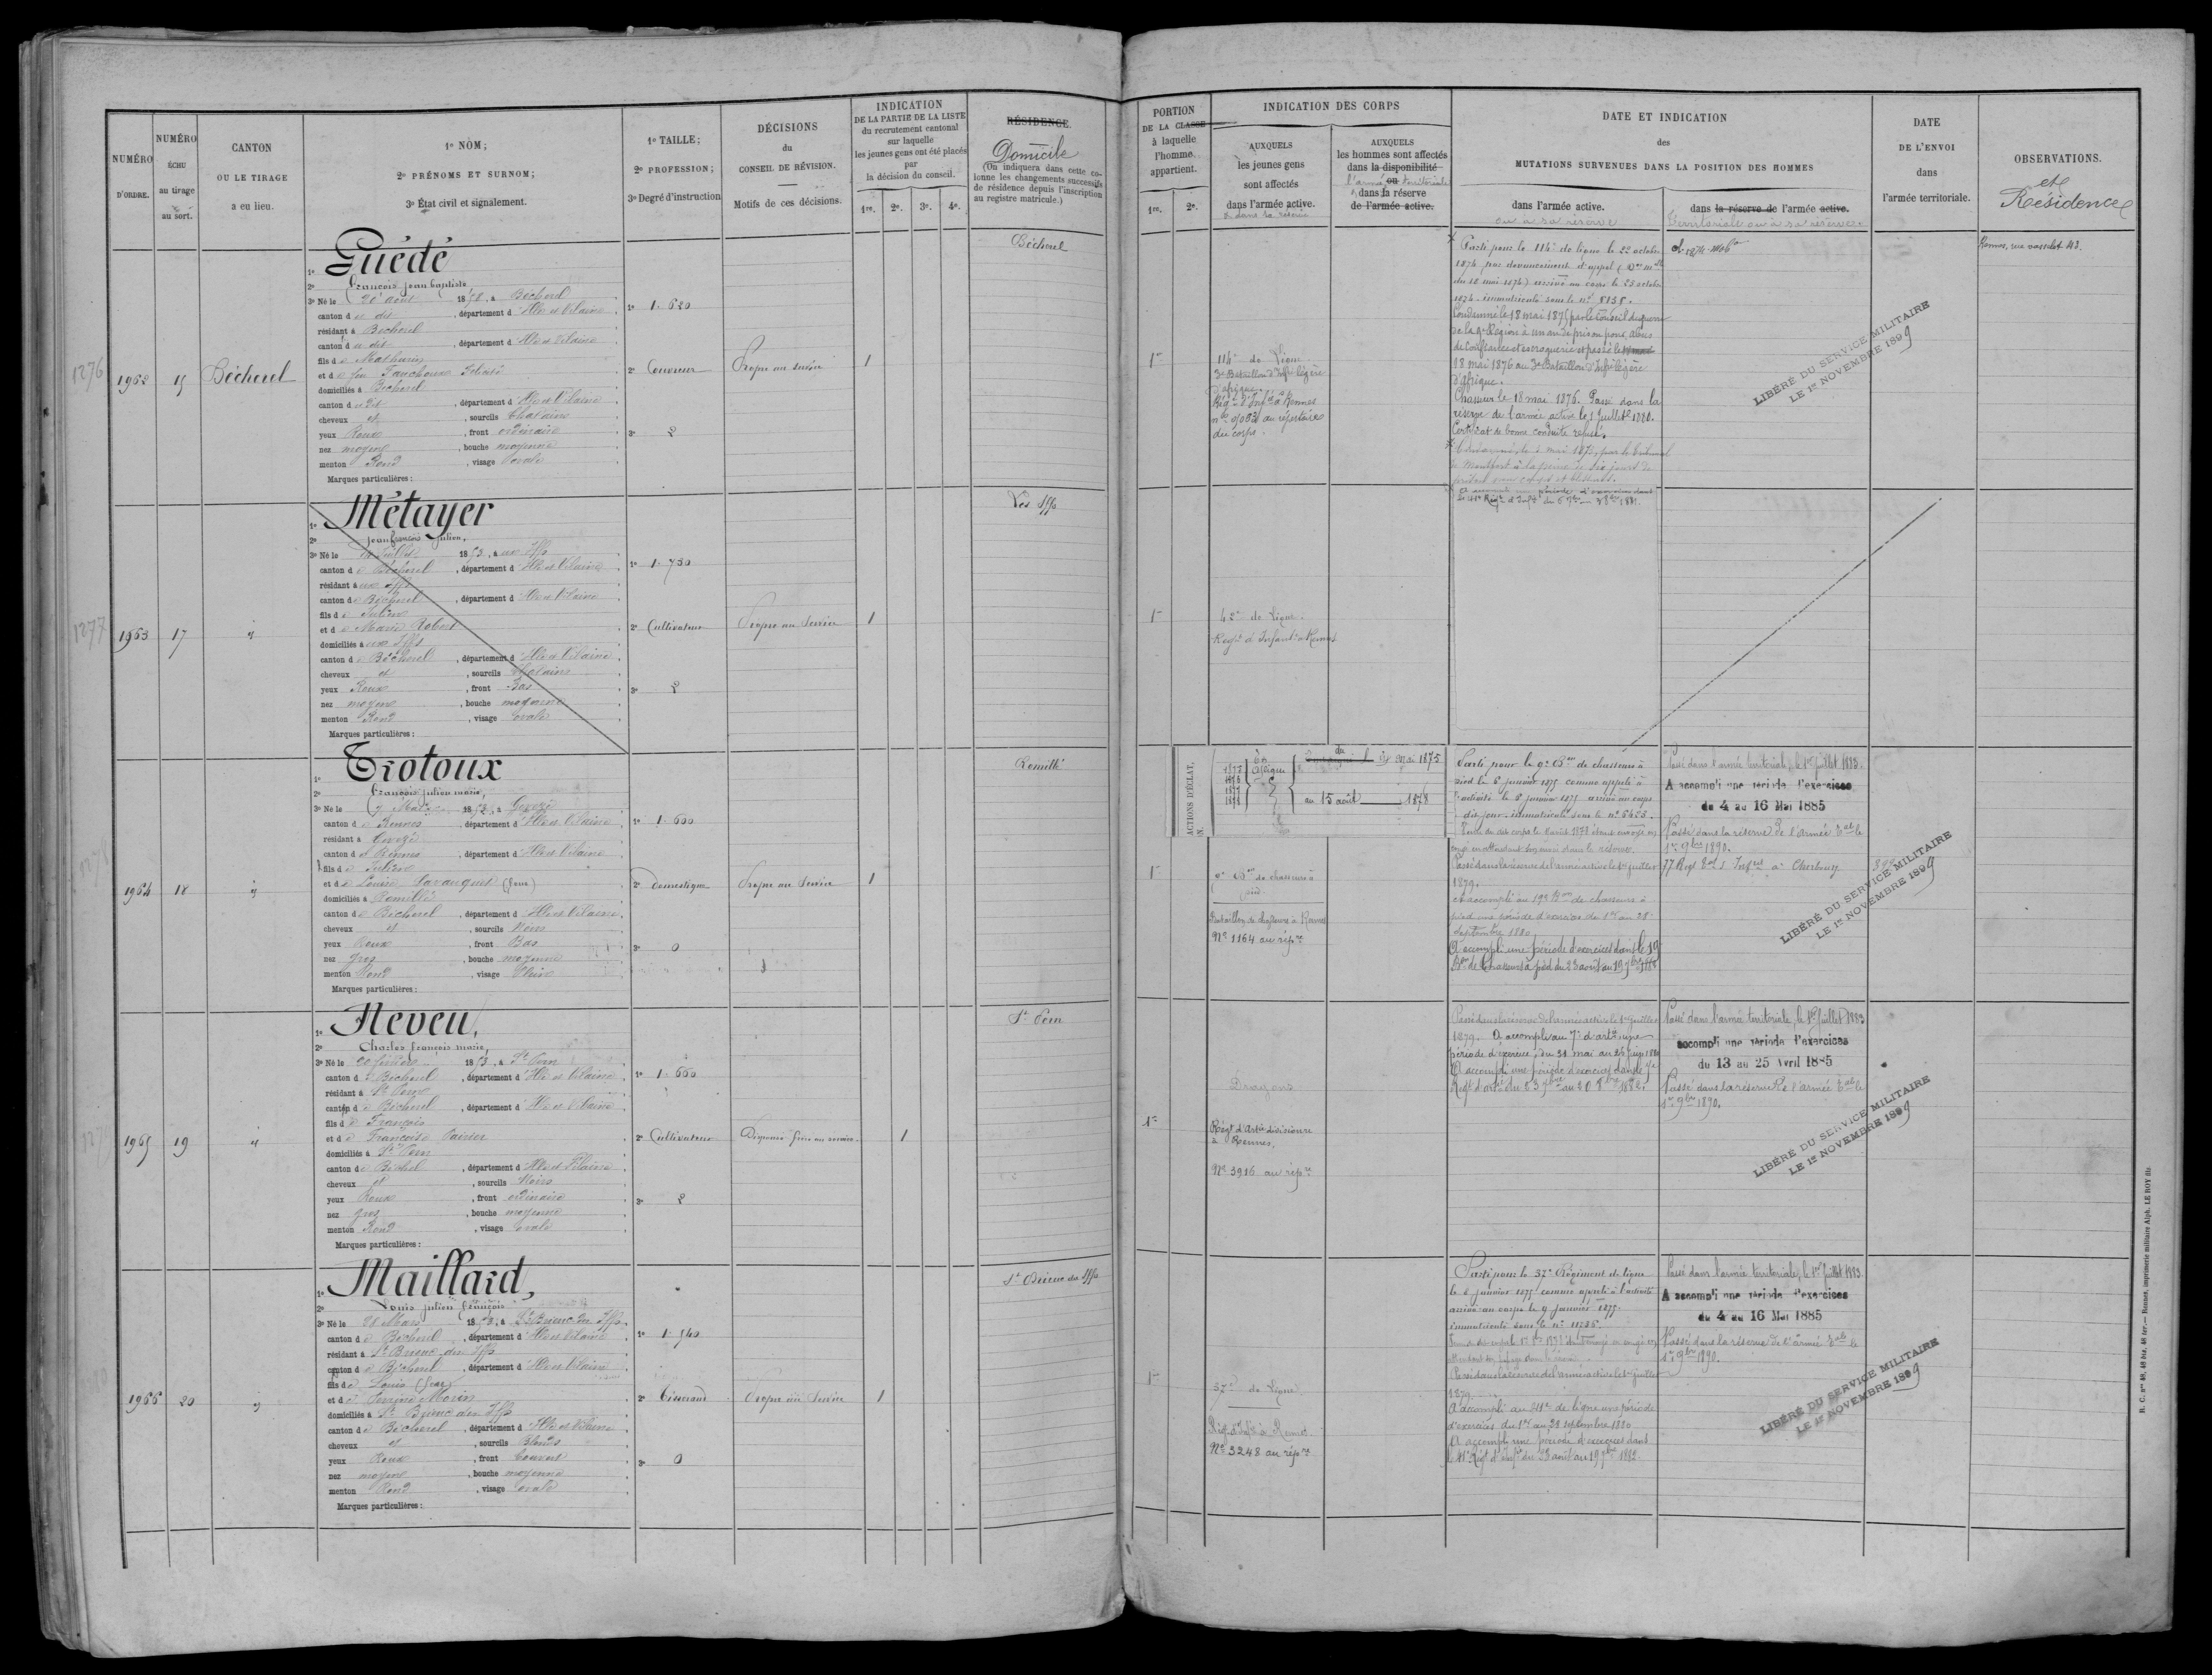 NUMÉRO
D'ORDRE.
NUMÉRO
ÉCHU
au tirage
au sort.
CANTON
OU LE TIRAGE
a eu lieu.
1º NOM;
2º PRÉNOMS ET SURNOM;
3º État civil et signalement.
1º TAILLE;
2º PROFESSION;
3º Degré d'instruction
DÉCISIONS
du
CONSEIL DE RÉVISION.
Motifs de ces décisions.
INDICATION
DE LA PARTIE DE LA LISTE
du recrutement cantonal
sur laquelle
les jeunes gens ont été placés
par
la décision du conseil.
1re. 2e. 3e. 4e.
RÉSIDENCE.
Domicile
(On indiquera dans cette co-
lonne les changements successifs
de résidence depuis l'inscription
au registre matricule.)
PORTION
DE LA CLASSE
à laquelle
l'homme
appartient.
1re. 2e.
INDICATION DES CORPS
AUXQUELS
les jeunes gens
sont affectés
dans l'armée active.
& dans sa réserve
AUXQUELS
les hommes sont affectés
dans la disponibilité
ou
l'armée territoriale
dans la réserve
de l'armée active.
DATE ET INDICATION
des
MUTATIONS SURVENUES DANS LA POSITION DES HOMMES
dans l'armée active.
ou à sa réserve
dans la réserve de l'armée active.
territoriale ou à sa réserve.
DATE
DE L'ENVOI
dans
l'armée territoriale.
OBSERVATIONS.
et
Résidence
1276
1962
15
Bécherel
1º Guédé
2º François Jean baptiste
3º Né le 20 août 1853, à Bécherel
canton d u dit, département d Ille et Vilaine
résidant à Bécherel
canton d u dit, département d Ille et Vilaine
fils de Mathurin
et d e feu Fauchoux
domiciliés à Bécherel
canton du dit, département d Ille et Vilaine
cheveux et, sourcils Chatains
yeux Roux, front ordinaire
nez moyen, bouche moyenne
menton Rond, visage ovale
Marques particulières :
1º 1.620
2º Couvreur
3º 2
Propre au service
1
Bécherel
1re
114e de Ligne
3e Bataillon d'Infie légère
d'afrique.
Régt d'Infie à Rennes
au répertoire
du corps.
Parti pour le 114e de ligne le 22 octobre
1874 par devancement d'appel
du 10 mai 1874) arrivé au corps le 23 octobre
1874 immatriculé sous le nº 5135.
Condamné le 18 mai 1875 par le Conseil de guerre
de la 4e Région à un an de prison pour abus
de confiance et escroquerie et passé le
18 mai 1876 au 3e Bataillon d'Infie légère
d'afrique.
Chasseur le 18 mai 1876. Passé dans la
réserve de l'armée active le 1 Juillet 1880.
Certificat de bonne conduite refusé.
de Montfort à la peine de six jours de
prison pour coups et blessures.
LIBÉRÉ DU SERVICE MILITAIRE
LE 1er NOVEMBRE 1899
Rennes, rue vasselot 43.
1277
1963
17
"
1º Métayer
2º Jean François Julien,
3º Né le Juillet 1853, à aux Iffs
canton d e Bécherel, département d Ille et Vilaine
résidant à aux Iffs
canton d e Bécherel, département d Ille et Vilaine
fils d e Julien
et d e Marie Robert
domiciliés à aux Iffs
canton d e Bécherel, département d Ille et Vilaine
cheveux et, sourcils Chatains
yeux Roux, front Bas
nez moyen, bouche moyenne
menton Rond, visage ovale
Marques particulières :
1º 1.730
2º Cultivateur
3º 2
Propre au Service
1
Les Iffs
1re
42e de Ligne
Régt d'Infanie à Rennes
1964
18
"
1º Trotoux
2º François Julien marie,
3º Né le 7 Mars 1853, à Gévezé
canton d e Rennes, département d Ille et Vilaine
résidant à Gévezé
canton d e Rennes, département d Ille et Vilaine
fils d e Julien
et d e Louise
domiciliés à Romillé
canton d e Bécherel, département d Ille et Vilaine
cheveux et, sourcils Noirs
yeux Roux, front Bas
nez gros, bouche moyenne
menton Rond, visage Plein
Marques particulières :
1º 1.600
2º domestique
3º 0
Propre au Service
1
Romillé
ACTIONS D'ÉCLAT,
Afrique
du
mai 1875
au 15 août 1878
1re
9e Bon de chasseurs à
pied
Bataillon de chasseurs à Rennes
Nº 1164 au répre
Parti pour le 9e Bon de chasseurs à
pied le 6 janvier 1875 comme appelé à
l'activité le 6 janvier 1875 arrivé au corps
dit jour immatriculé sous le nº 5425.
Passé dans la réserve de l'armée active le 1er juillet
1879.
A accompli au 19e Bon de chasseurs à
pied une période d'exercices du 1er au 28
septembre 1880
A accompli une période d'exercices dans le 19
Bon de Chasseurs à pied du 23 août au 19 7bre 1882
Passé dans l'armée territoriale, le 1er Juillet 1883.
A accompli une période d'exercices
du 4 au 16 Mai 1885
Passé dans la réserve de l'Armée Tale le
1er 9bre 1890.
77 Regt Tal d'Infie à Cherbourg
LIBÉRÉ DU SERVICE MILITAIRE
LE 1er NOVEMBRE 1899
1965
19
"
1º Neveu,
2º Charles François marie,
3º Né le 20 février 1853, à St Pern
canton d e Bécherel, département d Ille et Vilaine
résidant à St Pern
canton d e Bécherel, département d Ille et Vilaine
fils d e François
et d e Françoise
domiciliés à St Pern
canton d e Bécherel, département d Ille et Vilaine
cheveux et, sourcils Noirs
yeux Roux, front ordinaire
nez gros, bouche moyenne
menton Rond, visage ovale
Marques particulières :
1º 1.660
2º Cultivateur
3º 2
Dispensé frère au service.
1
St Pern
1re
Dragons
Régt d'Artie divisionre
à Rennes.
Nº 3916 au répre
Passé dans la réserve de l'armée active le 1er Juillet
1879. A accompli au 7e d'artie une
période d'exercices, du 31 mai au 26 juin 1880
A accompli une période d'exercices dans le 7e
Passé dans l'armée territoriale, le 1er Juillet 1883
accompli une période d'exercices
du 13 au 25 Avril 1885
Passé dans la réserve de l'armée Tale le
1er 9bre 1890.
LIBÉRÉ DU SERVICE MILITAIRE
LE 1er NOVEMBRE 1899
1966
20
"
1º Maillard,
2º Louis Julien François
3º Né le 28 Mars 1853, à St Brieuc des Iffs
canton d e Bécherel, département d Ille et Vilaine
résidant à St Brieuc des Iffs
canton d e Bécherel, département d Ille et Vilaine
fils d e Louis (feu)
et d e Morin
domiciliés à St Brieuc des Iffs
canton d e Bécherel, département d Ille et Vilaine
cheveux et, sourcils Blonds
yeux Roux, front Couvert
nez moyen, bouche moyenne
menton Rond, visage ovale
Marques particulières :
1º 1.540
2º Tisserand
3º 0
Propre au Service
1
St Brieuc des Iffs
1re
37e de Ligne
Régt d'Infie à Rennes
Nº 3248 au répre
Parti pour le 37e Régiment de ligne
le 6 janvier 1875 comme appelé à l'activité
arrivé au corps le 9 janvier 1875.
immatriculé sous le nº
Passé dans la réserve de l'armée active le 1er juillet
1879.
A accompli au 41e de ligne une période
d'exercices du 1er au 28 septembre 1880
A accompli une période d'exercices dans
le 41e Régt d'Infie du 23 août au 19 7bre 1882.
Passé dans l'armée territoriale, le 1er Juillet 1883.
A accompli une période d'exercices
du 4 au 16 Mai 1885
Passé dans la réserve de l'armée Tale le
1er 9bre 1890.
LIBÉRÉ DU SERVICE MILITAIRE
LE 1er NOVEMBRE 1899
R. C. nos 40, 40 bis, 40 ter. — Rennes, imprimerie militaire Alph. LE ROY fils